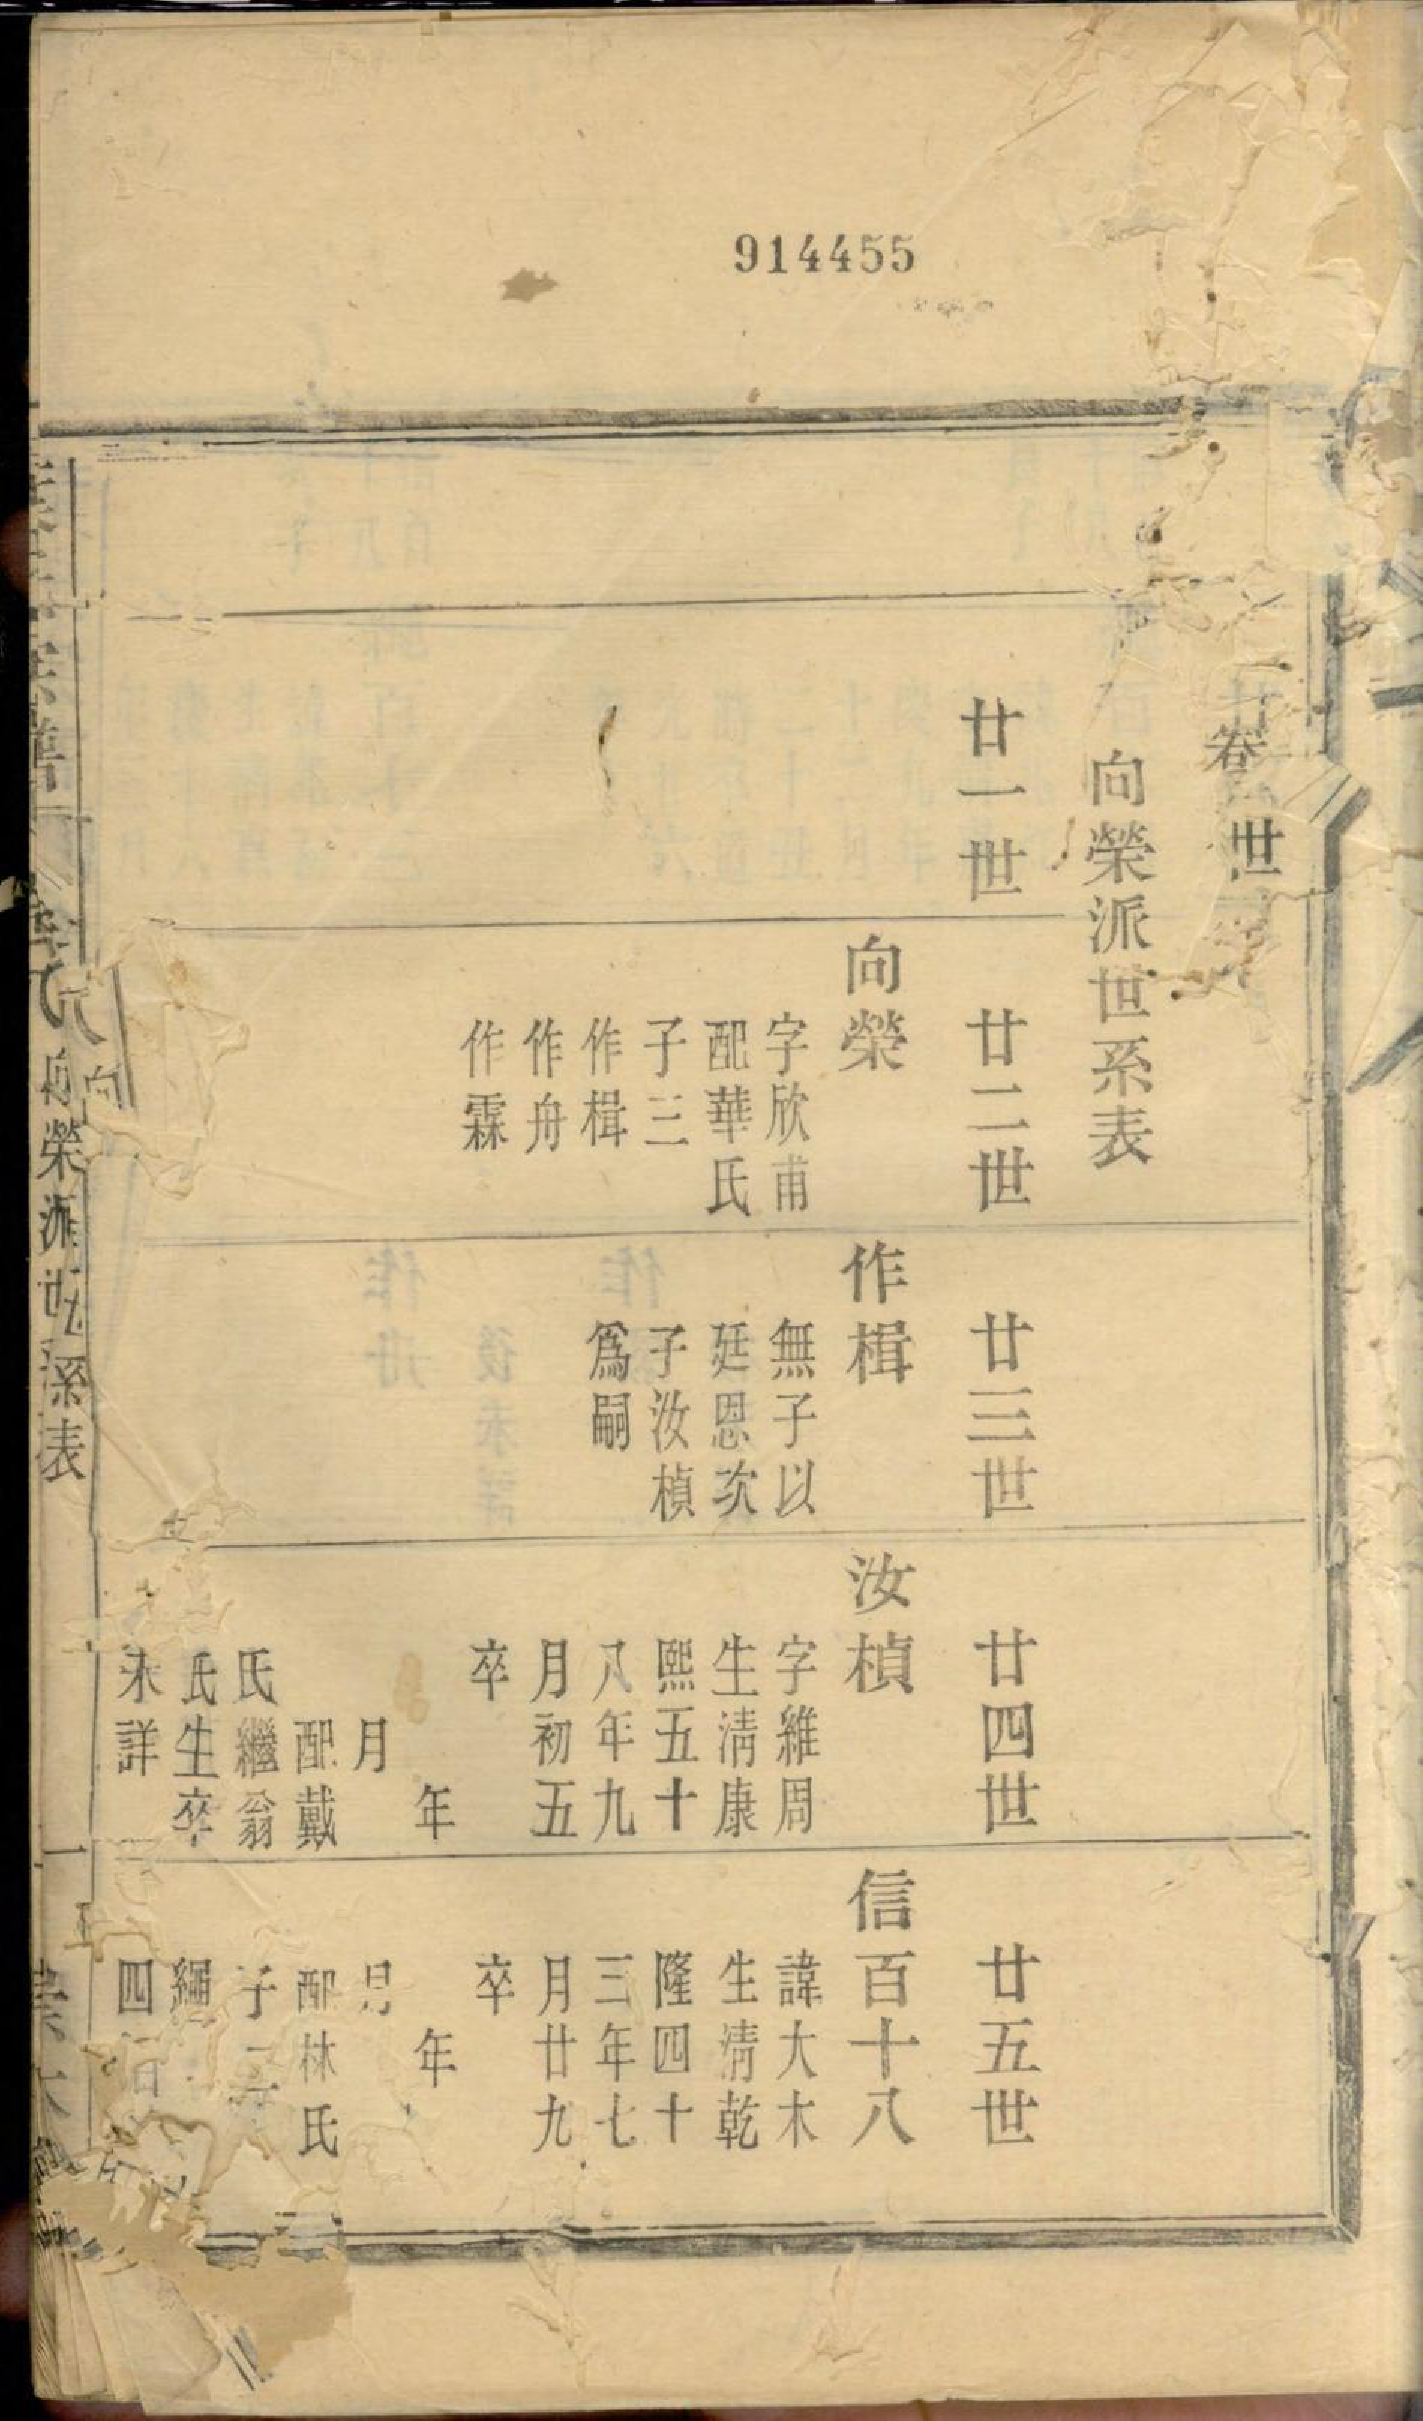 914455
卷
世
向榮派世系表
廿一世
廿二世
廿三世
廿四世
廿五世
向榮
字欣甫
配華氏
子三
作楫
作舟
作霖
作楫
無子以
廷恩次
子汝楨
爲嗣
汝楨
字維周
生淸康
熙五十
八年九
月初五
卒
年
月
配戴
氏繼翁
氏生卒
未詳
信百十八
諱大木
生淸乾
隆四十
三年七
月廿九
卒
年
月
配林氏
子二
繩
四
向榮派世系表